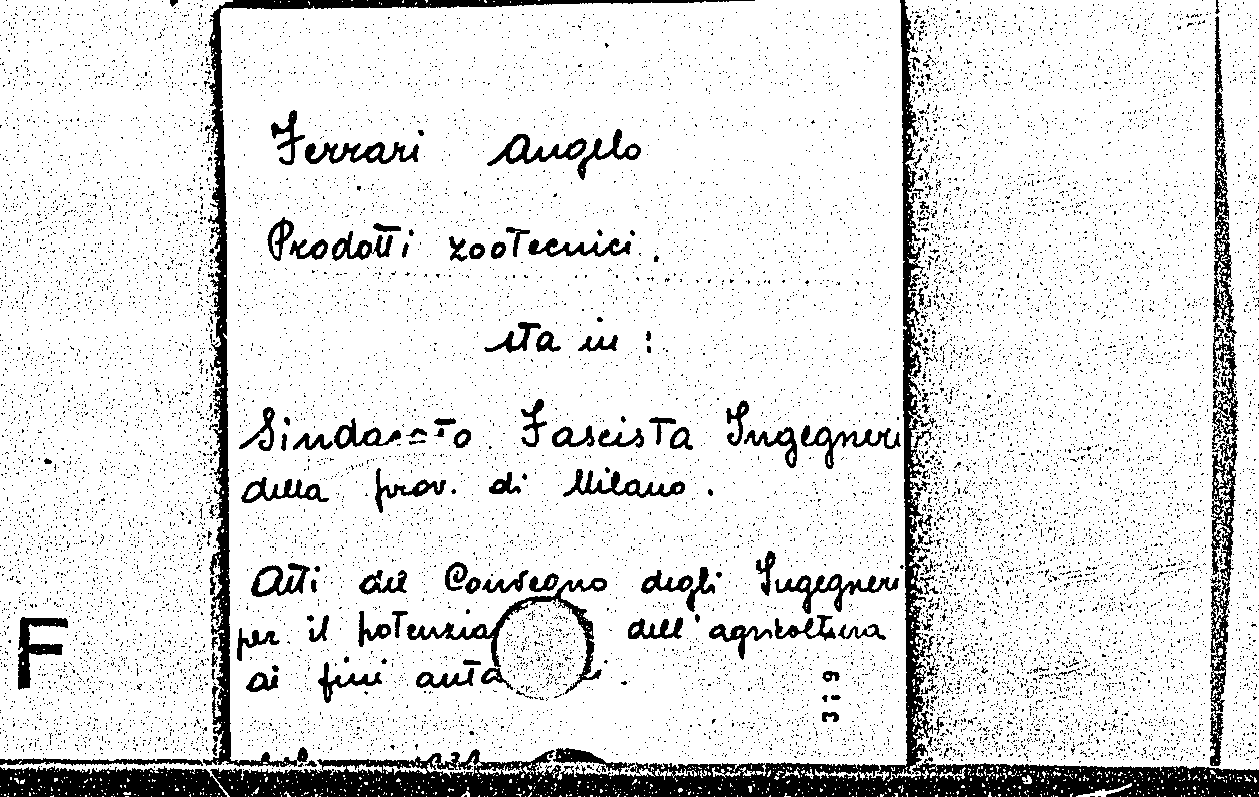 Ferrari Angelo
Prodotti zootecnici.
sta in:
Sindacato Fascista Ingegneri
della prov. di Milano.
Atti del Convegno degli Ingegneri
per il potenzia dell'agricoltura
ai fini auta i.
319
F